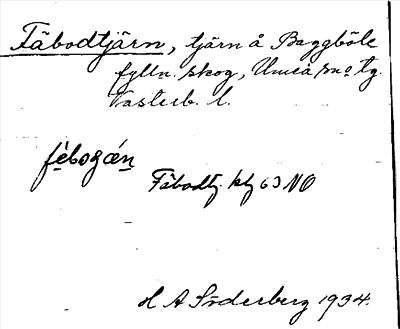 Fäbodtjärn, tjärn å Baggböle
fylln. skog, Umeå sn o tg.
Västerb. l.
fèbogǽn
Fäbodtj. ktg 63 NO
H A Söderberg 1934.